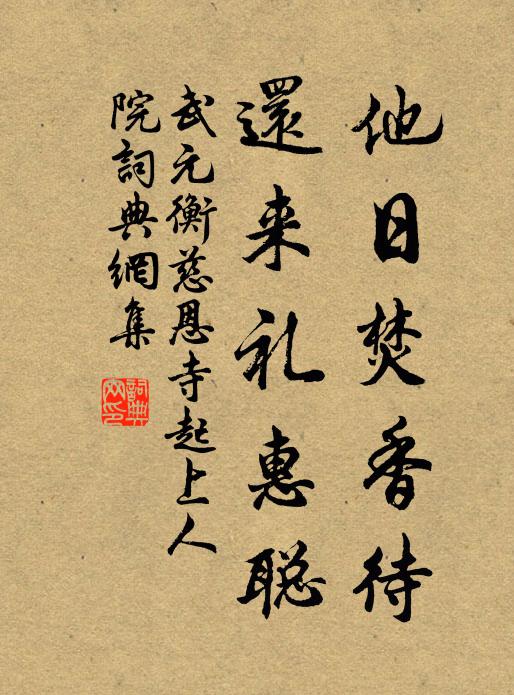 他日焚香待
還来礼惠聪
武元衡慈恩寺起上人
院詞典網集
詞典網印